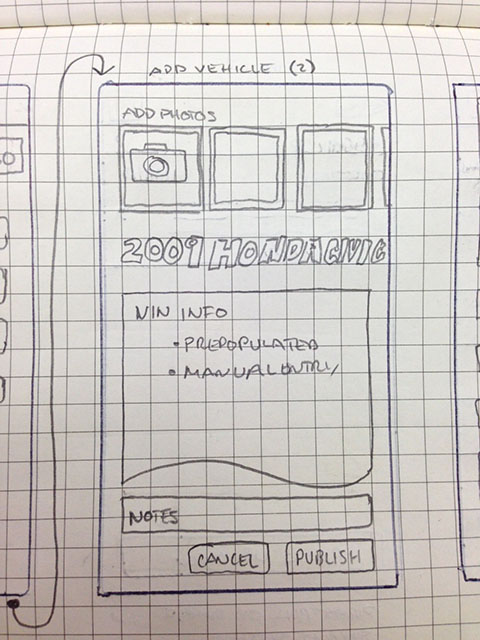 ADD VEHICLE (2)
ADD PHOTOS
2009 HONDA CIVIC
VIN INFO
• PREPOPULATED
• MANUAL ENTRY
NOTES
CANCEL
PUBLISH